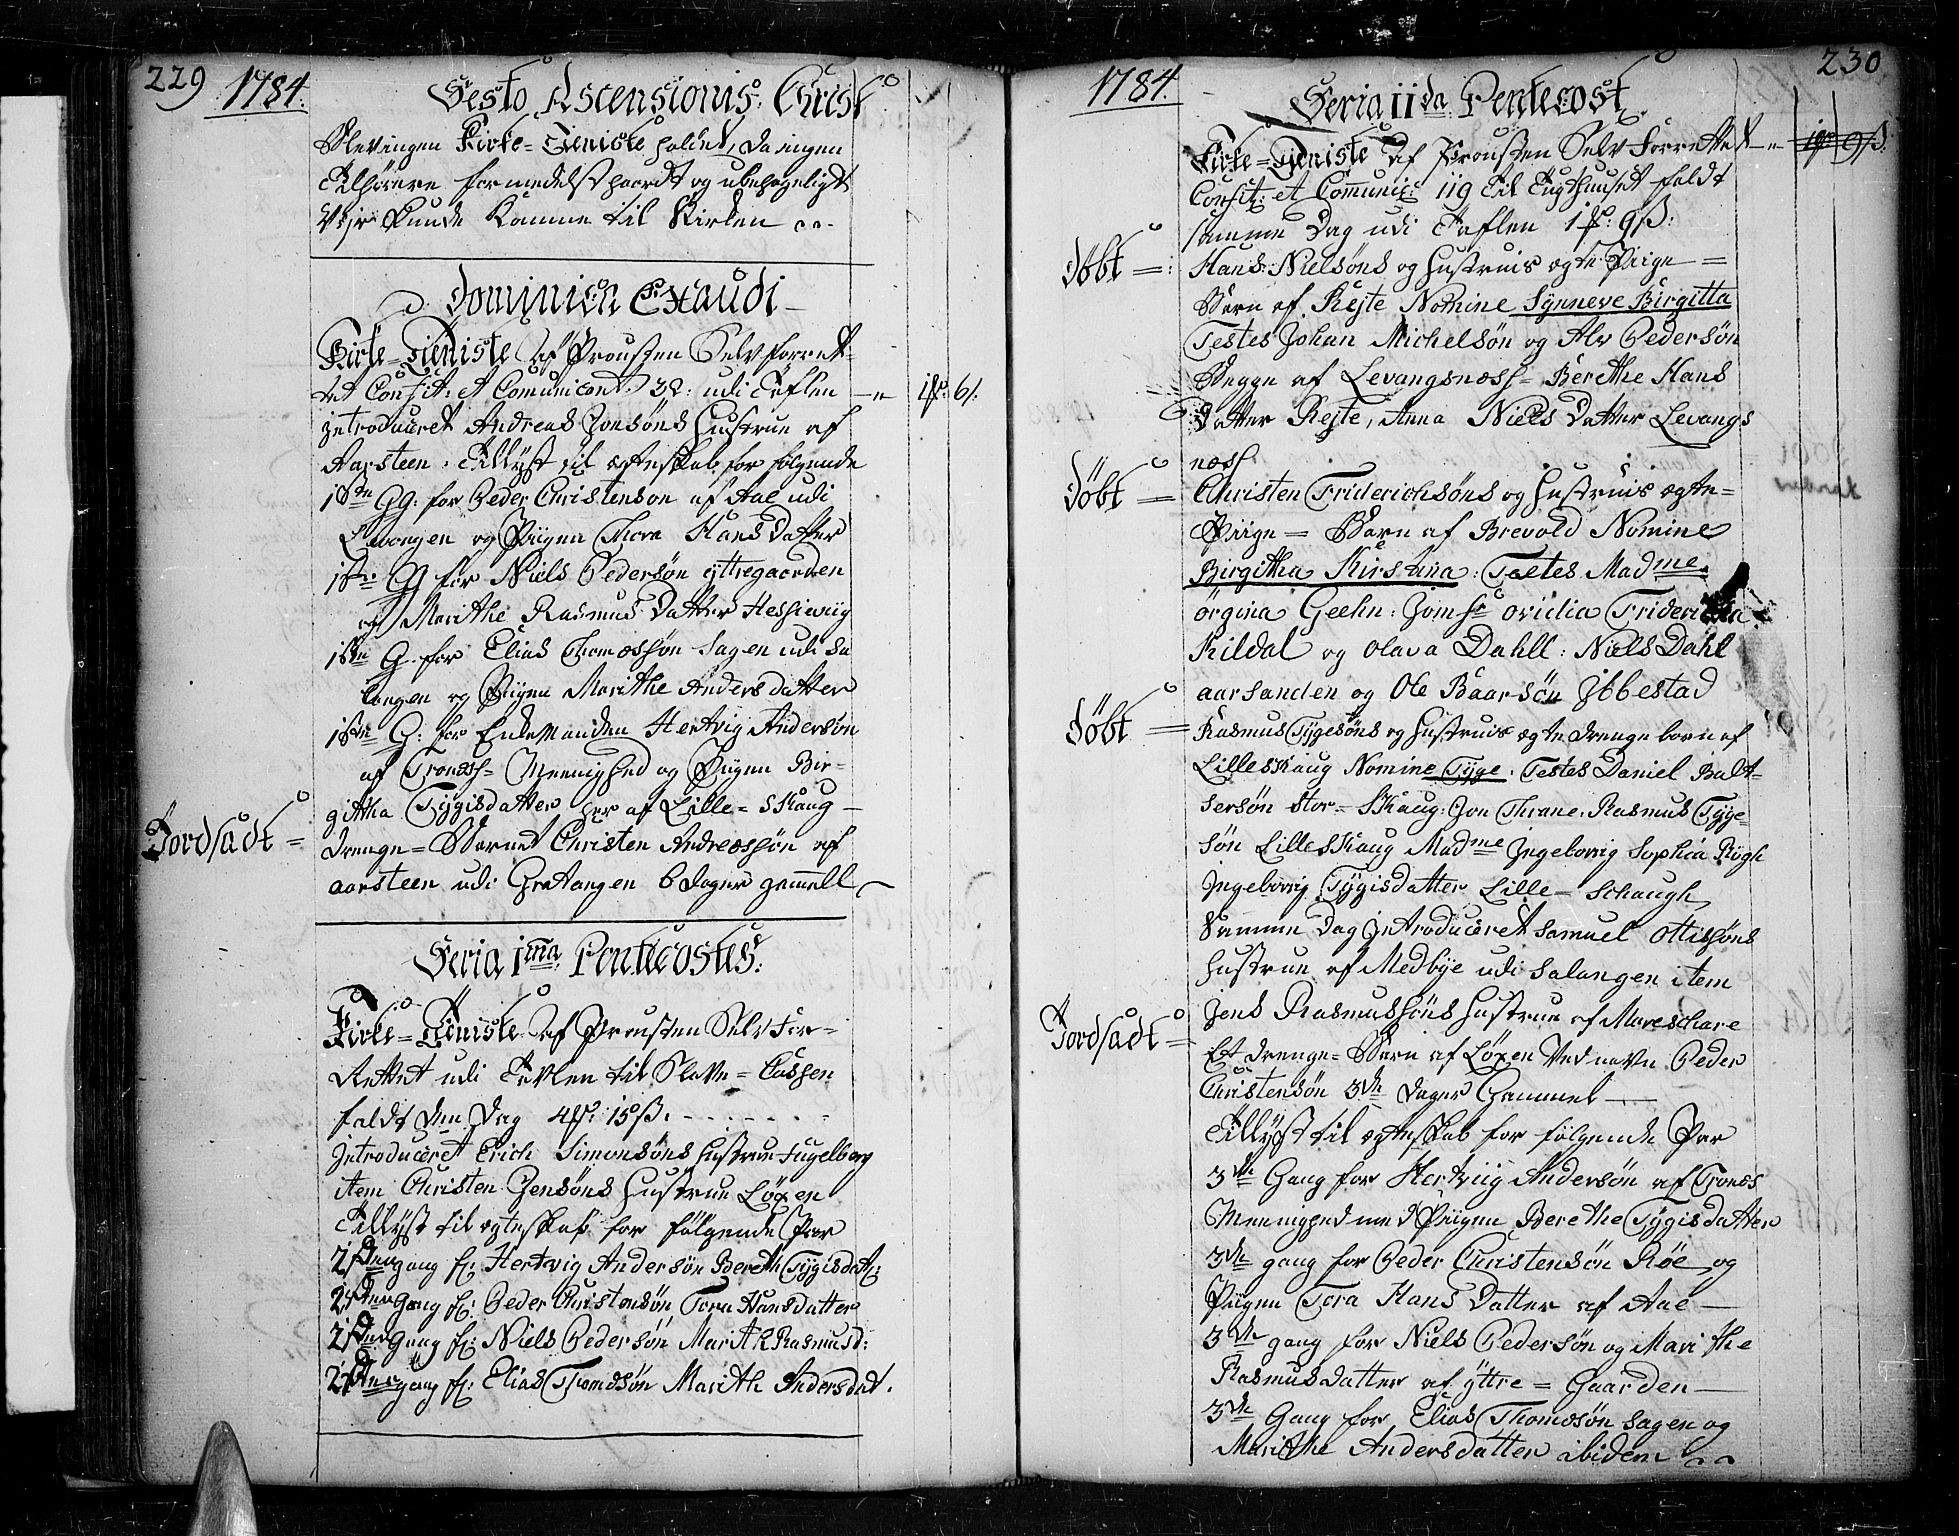 229 1784. Festo Ascensionis: Christ
Blev ingen Kirke=Tieniste holdet, da ingen
Tilhörere formedelst haardt og ubehageligt
Vejr kunde komme til Kirken
Dominica Exaudi
Kirke=Tieniste af Prousten Selv forret-
tet Consit: et Comunicant: 32: udi Taflen — 6
introduceret Andreas Jonsöns Hustrue af
Aarsteen. Tillyst til egteskab for følgende
1ste Gg: for Peder Christenson af Aae udi
og Piigen Thora Hans Datter
1ste G for Niels Pedersön yttregaarden
og Marithe Rasmus Datter
1ste G. for Elias Thomessön Sagen udi Sa
langen og Piigen Marithe Anders datter
1ste G: for Enkemanden Hertvig Andersön
af Tronæss= Meenighed og Piigen Bir-
githa Tygisdatter her af Lille=Skaug
Jordsadt = Drenge=Barnet Christen Andreassön af
aarsteen udi Gratangen 6 dager gamell
Feria 1ma Pentecostes:
Kirke=Tieniste af Prousten Selv For-
Rettet udi Tavlen til Slave=Cassen
faldt den Dag 4 15 ß.
Introduceret Erich Simonsöns Hustrue Fugelberg
item Christen Jensöns Hustrue Löxen
Tillyst til egteskab for fölgende Par
2den gang f: Hertvig Andersön Bereth Tygisdat:
2den Gang f: Peder Christensön Tora Hansdatter
2den Gang f: Niels Pedersön Marith Rasmusd:
2den gang f: Elias Thomdsön Marith Andersdat.
1784. 230
Feria IIda Pentecost
Kirke=Tieniste af Prousten Selv Forrettet
Consit: et Communic: 119 Til Tugthuuset faldt
samme Dag udi Taflen 1 9 ß:
döbt = Hans Nielsöns og Hustruis egte Piige
Barn af Rejte Nomine Synneve Birgitta
Testes Johan Michelsön og Alv Pedersön
Begge af Levangsnæss= Berethe Hans
Datter Rejte, Anna Niels Datter Levangs
næss
döbt = Christen Friderichsöns og Hustruis egte=
Piige = Barn af Brevold Nomine
Birgitha Kirstina: Testes Madme
örgina Geelm: Jomfr Ovidia Friderica
Kildal og Olava Dahll: Niels Dahl
aarsanden og Ole Baarsön Ibbestad
döbt = Rasmus Tygesöns og Hustruis egte drenge barn af
Lilleskaug Nomine Tyge: Testes Daniel Balt-
sersön Stor=Skaug: Jon Thrane: Rasmus Tyge=
sön Lilleskaug Madme Ingeborrig Sophia Rögh
Ingeborrig Tygisdatter Lille=Schaugh
Samme Dag Introduceret Samuel Ottisöns
Hustrue af Medbye udi Salangen item
Jens Rasmussöns Hustrue af Mareschare
Jordsadt = Et drenge=Barn af Löxen Ved navn Peder
Christensön 3de dager Gammel
Tillyst til egteskab for fölgende Par
3de Gang for Hertvig Andersön af Tronæs
Meenighed med Piigen Berethe Tygisdatter
3de gang for Peder Christensön Röe og
Piigen Tora Hans Datter af Aae
3de gang for Niels Pedersön og Marithe
Rasmusdatter af yttre=Gaarden
3de Gang for Elias Thomesön Sagen og
Marithe Andersdatter ibidem